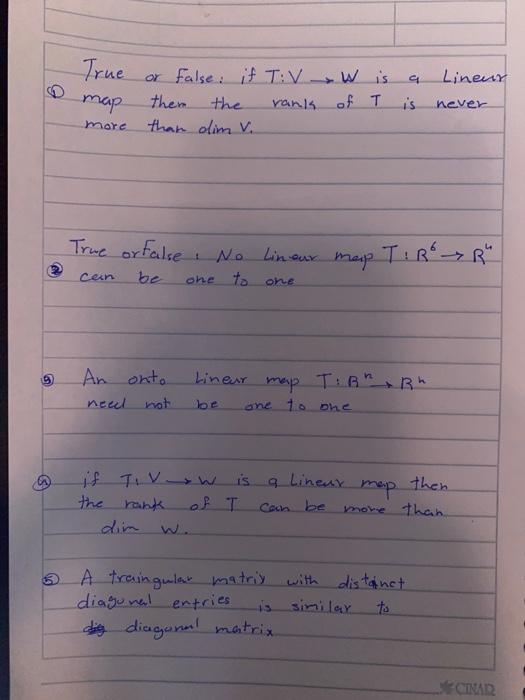 True or False: if T:V → W is a Linear
① map then the rank of T is never
more than dim V.
True or False : No Linear map T : R⁶ → R⁴
② can be one to one
③ An onto Linear map T : Rⁿ → Rⁿ
need not be one to one
④ if T: V → W is a Linear map then
the rank of T can be more than
dim W.
⑤ A traingular matrix with distinct
diagonal entries is similar to
diagonal matrix